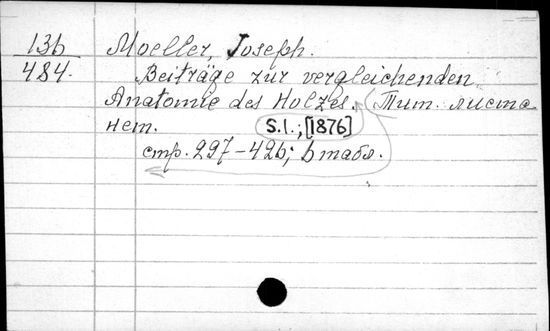 13b Moeller, Joseph.
484. Beiträge zur vergleichenden
Anatomie des Holzes. (Тит. листа
нет. S.l.; [1876]
стр. 297-426; 6 табл.